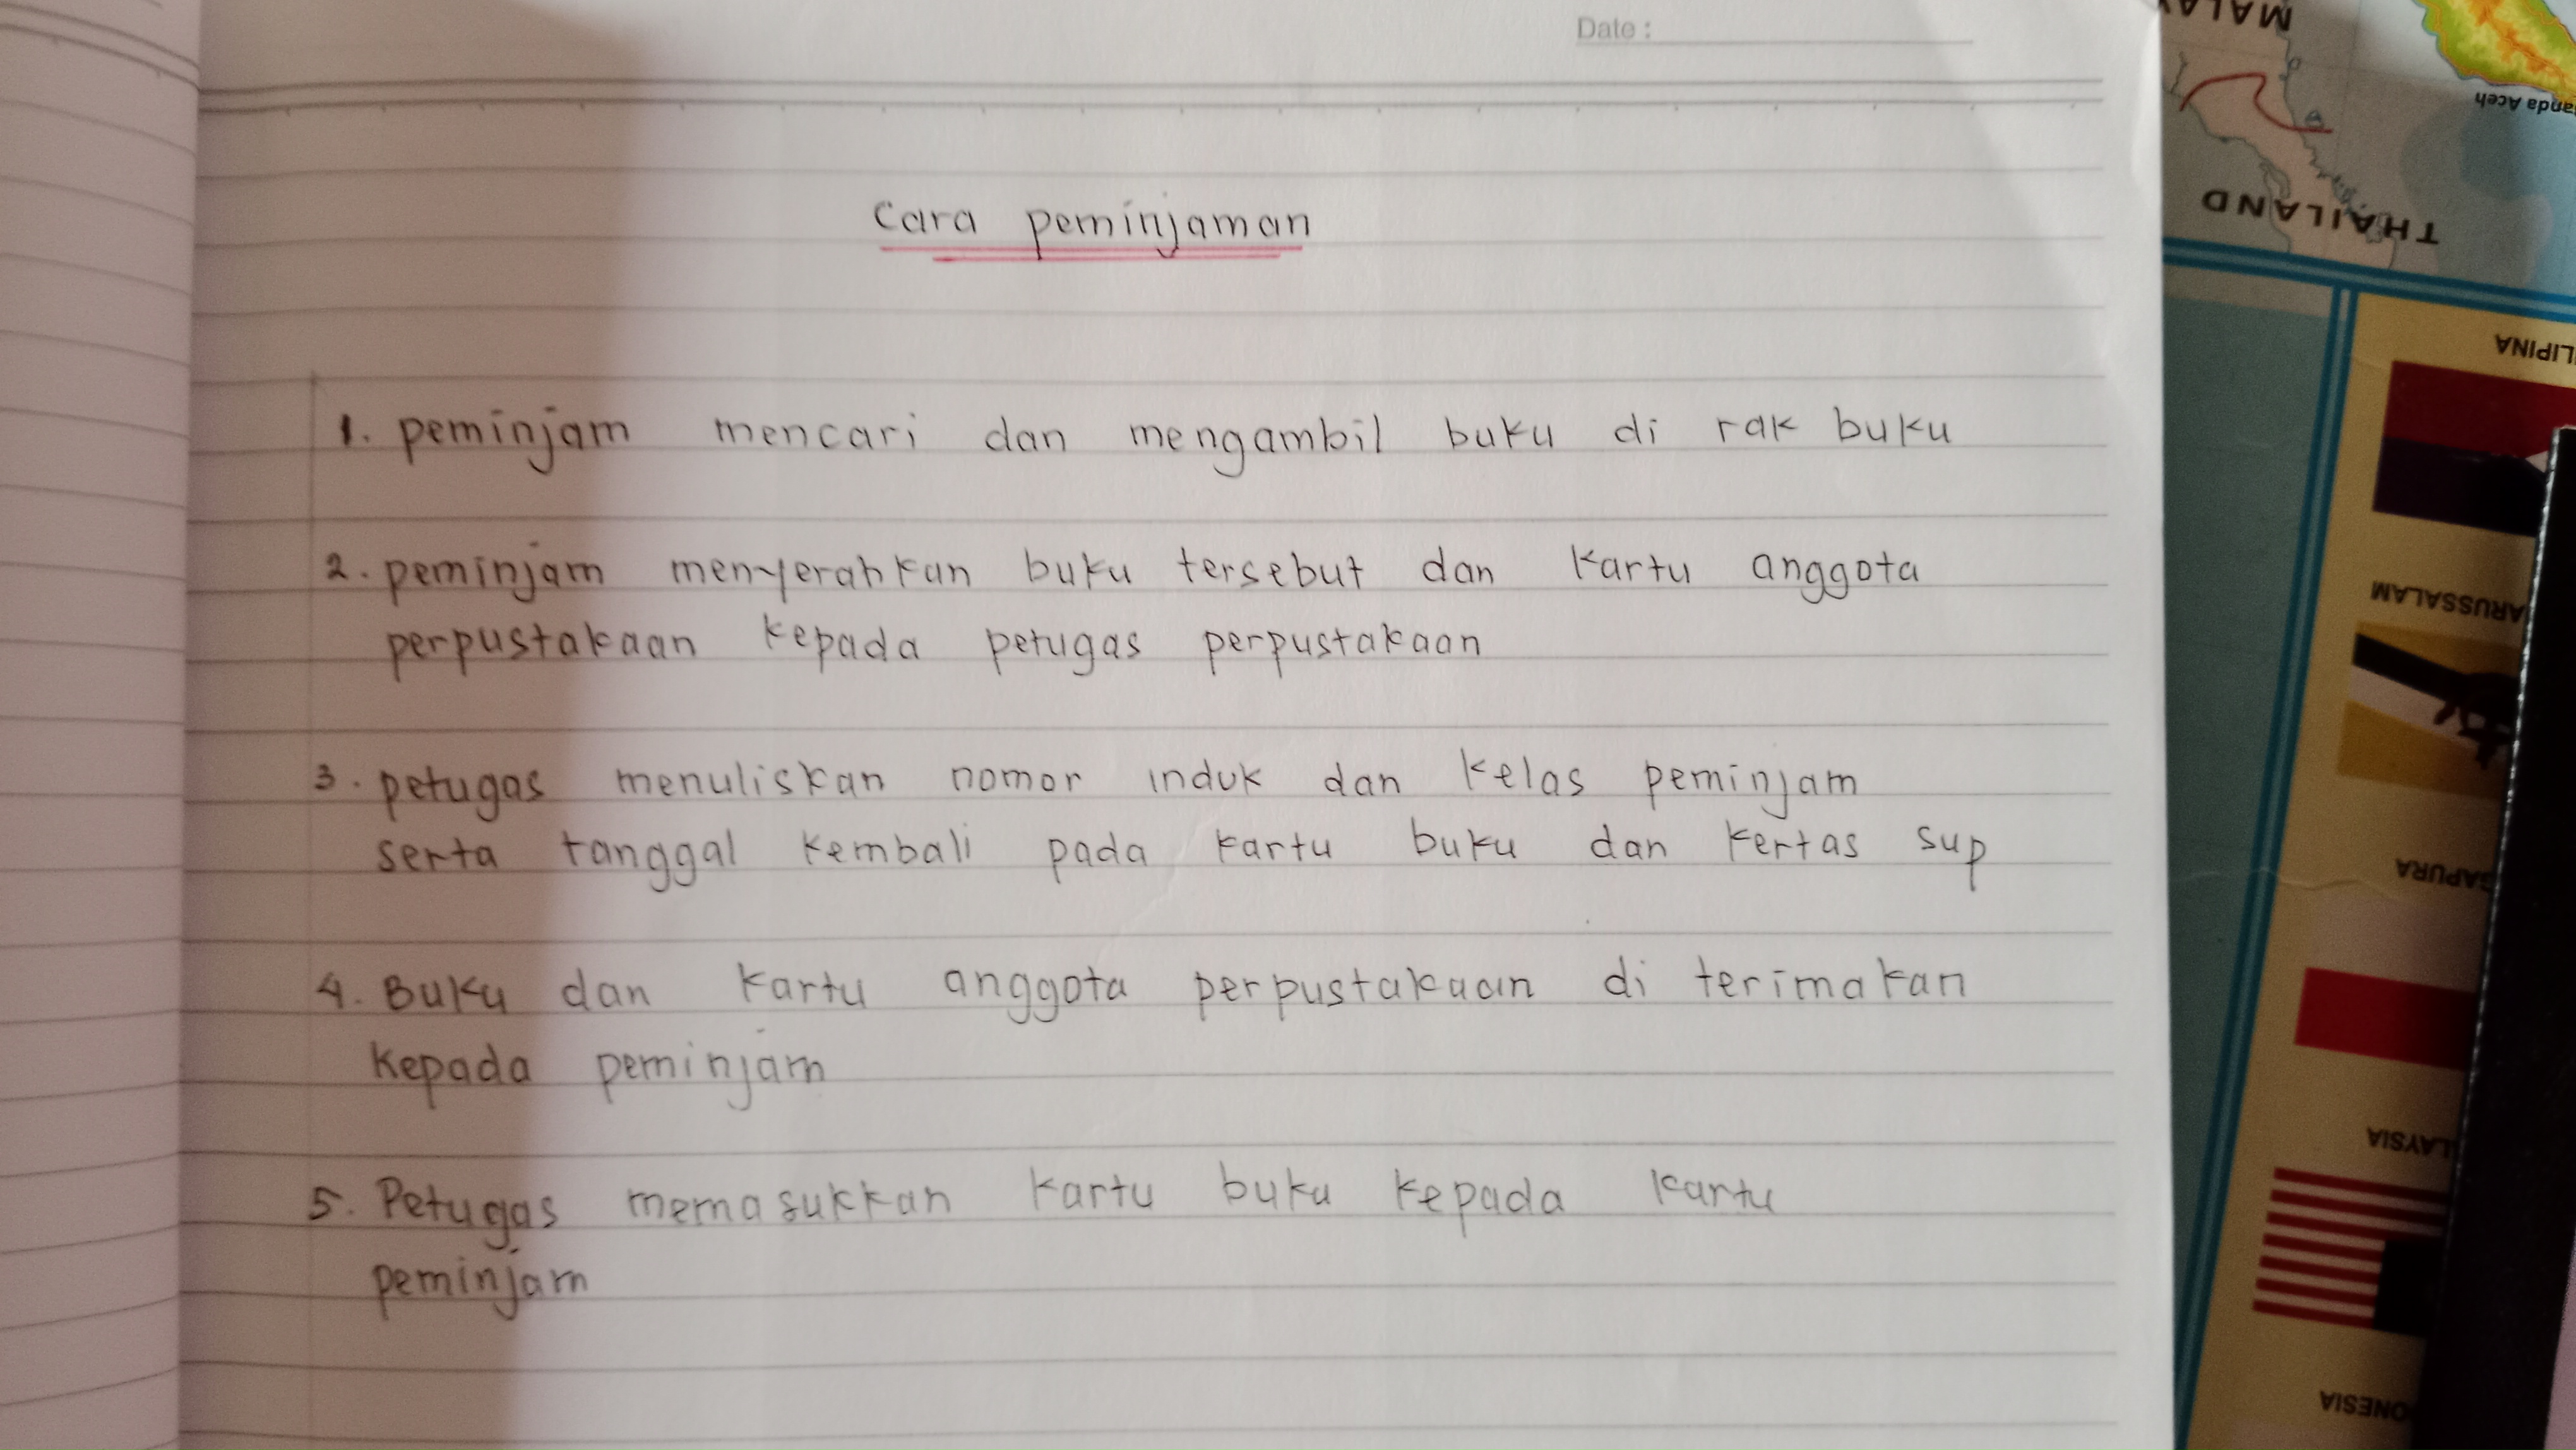 Date :
Cara peminjaman
1. peminjam mencari dan mengambil buku di rak buku
2. peminjam menyerahkan buku tersebut dan kartu anggota
perpustakaan kepada petugas perpustakaan
3. petugas menuliskan nomor induk dan kelas peminjam
serta tanggal kembali pada kartu buku dan kertas sup
4. Buku dan kartu anggota perpustakaan di terimakan
kepada peminjam
5. Petugas memasukkan kartu buku kepada kartu
peminjam
MALAY
anda Aceh
THAILAND
LIPINA
ARUSSALAM
GAPURA
LAYSIA
ONESIA